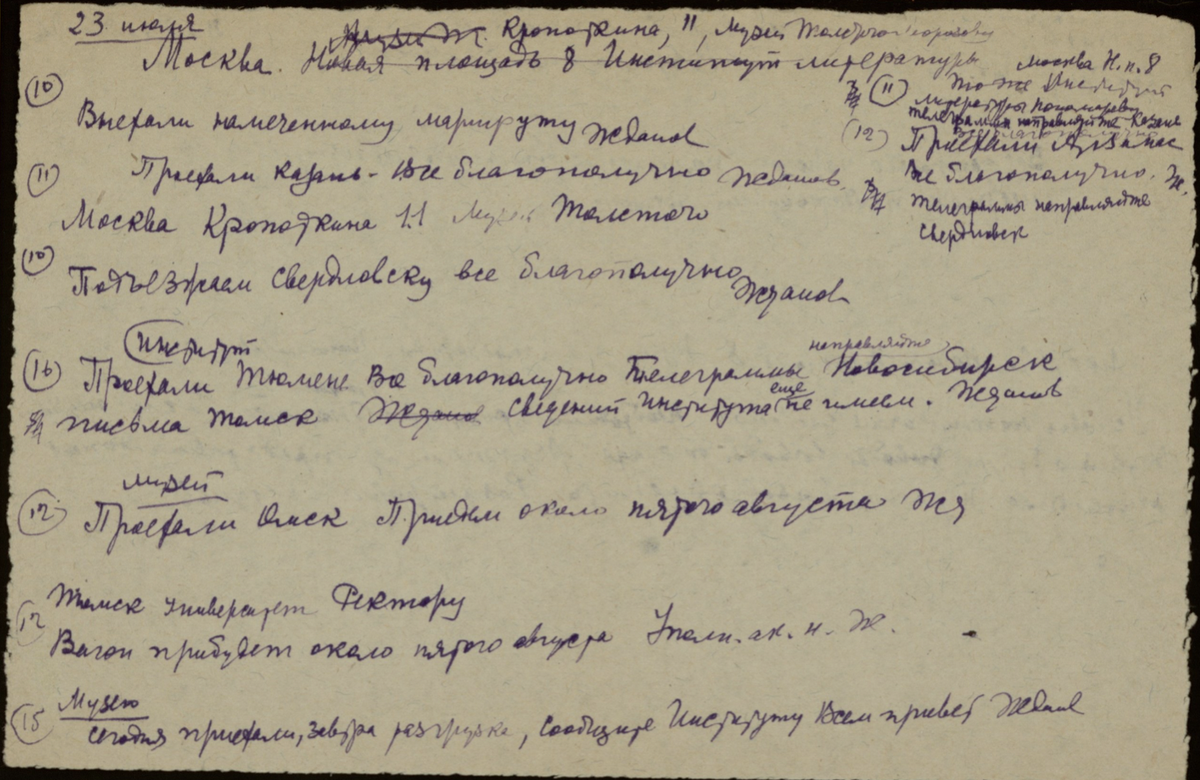 23 июля
Кропоткина, 11, музей Толстого
Москва. Новая площадь 8 Институт литературы
(10)
Выехали намеченному маршруту Жданов
(11) Проехали Казань - все благополучно Жданов.
Москва Кропоткина 11 Музей Толстого
(10)
Подъезжаем Свердловску все благополучно
Жданов
Институт
направляйте
(16) Проехали Тюмень Все благополучно Телеграммы Новосибирск
еще
письма Томск Жданов Сведений Института не имеем. Жданов
музей
(12) Проехали Омск Приедем около пятого августа Жд
Томск университет Ректору
(12) Вагон прибудет около пятого августа Уполн. ак. н. Ж.
(15) Музею
сегодня приехали, завтра разгрузка, сообщите Институту Всем привет Жданов
Москва Н. п. 8
(11) то же Институт
литературы Пономареву
телеграммы направляйте Казань
(12) Проехали Арзамас
Все благополучно. Ж.
телеграммы направляйте
Свердловск